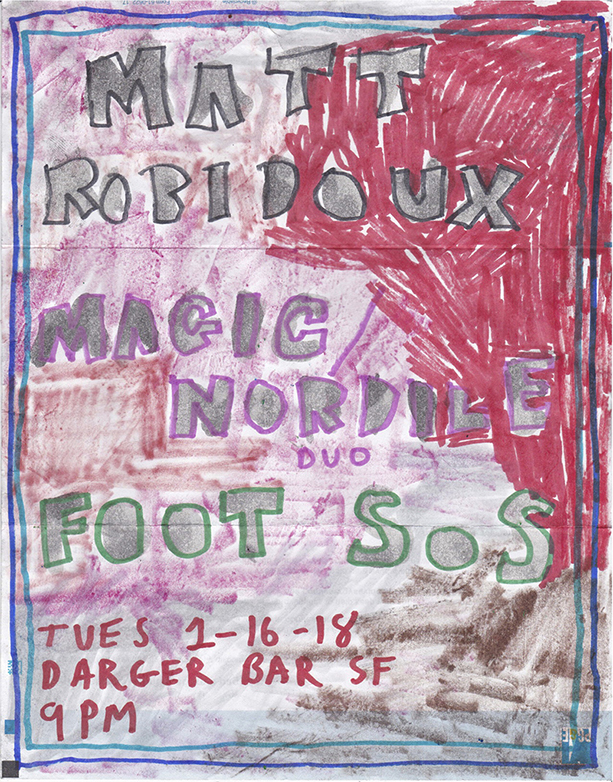 MATT
ROBIDOUX
MAGIC/
NORDILE
DUO
FOOT SOS
TUES 1-16-18
DARGER BAR SF
9 PM